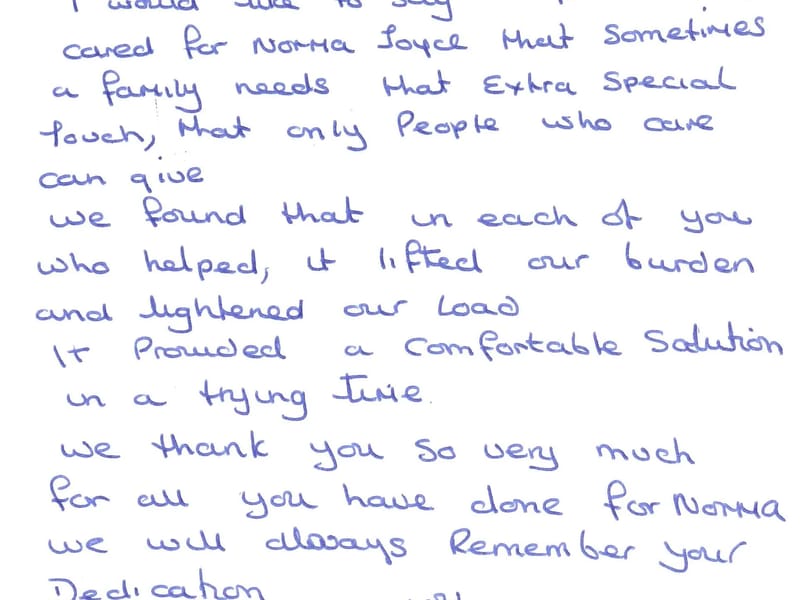 I would like to say
cared for Norma Joyce that sometimes
a family needs that Extra Special
touch, that only People who care
can give
we found that in each of you
who helped, it lifted our burden
and lightened our Load
It Provided a Comfortable Solution
in a trying time.
we thank you so very much
for all you have done for Norma
we will always Remember your
Dedication